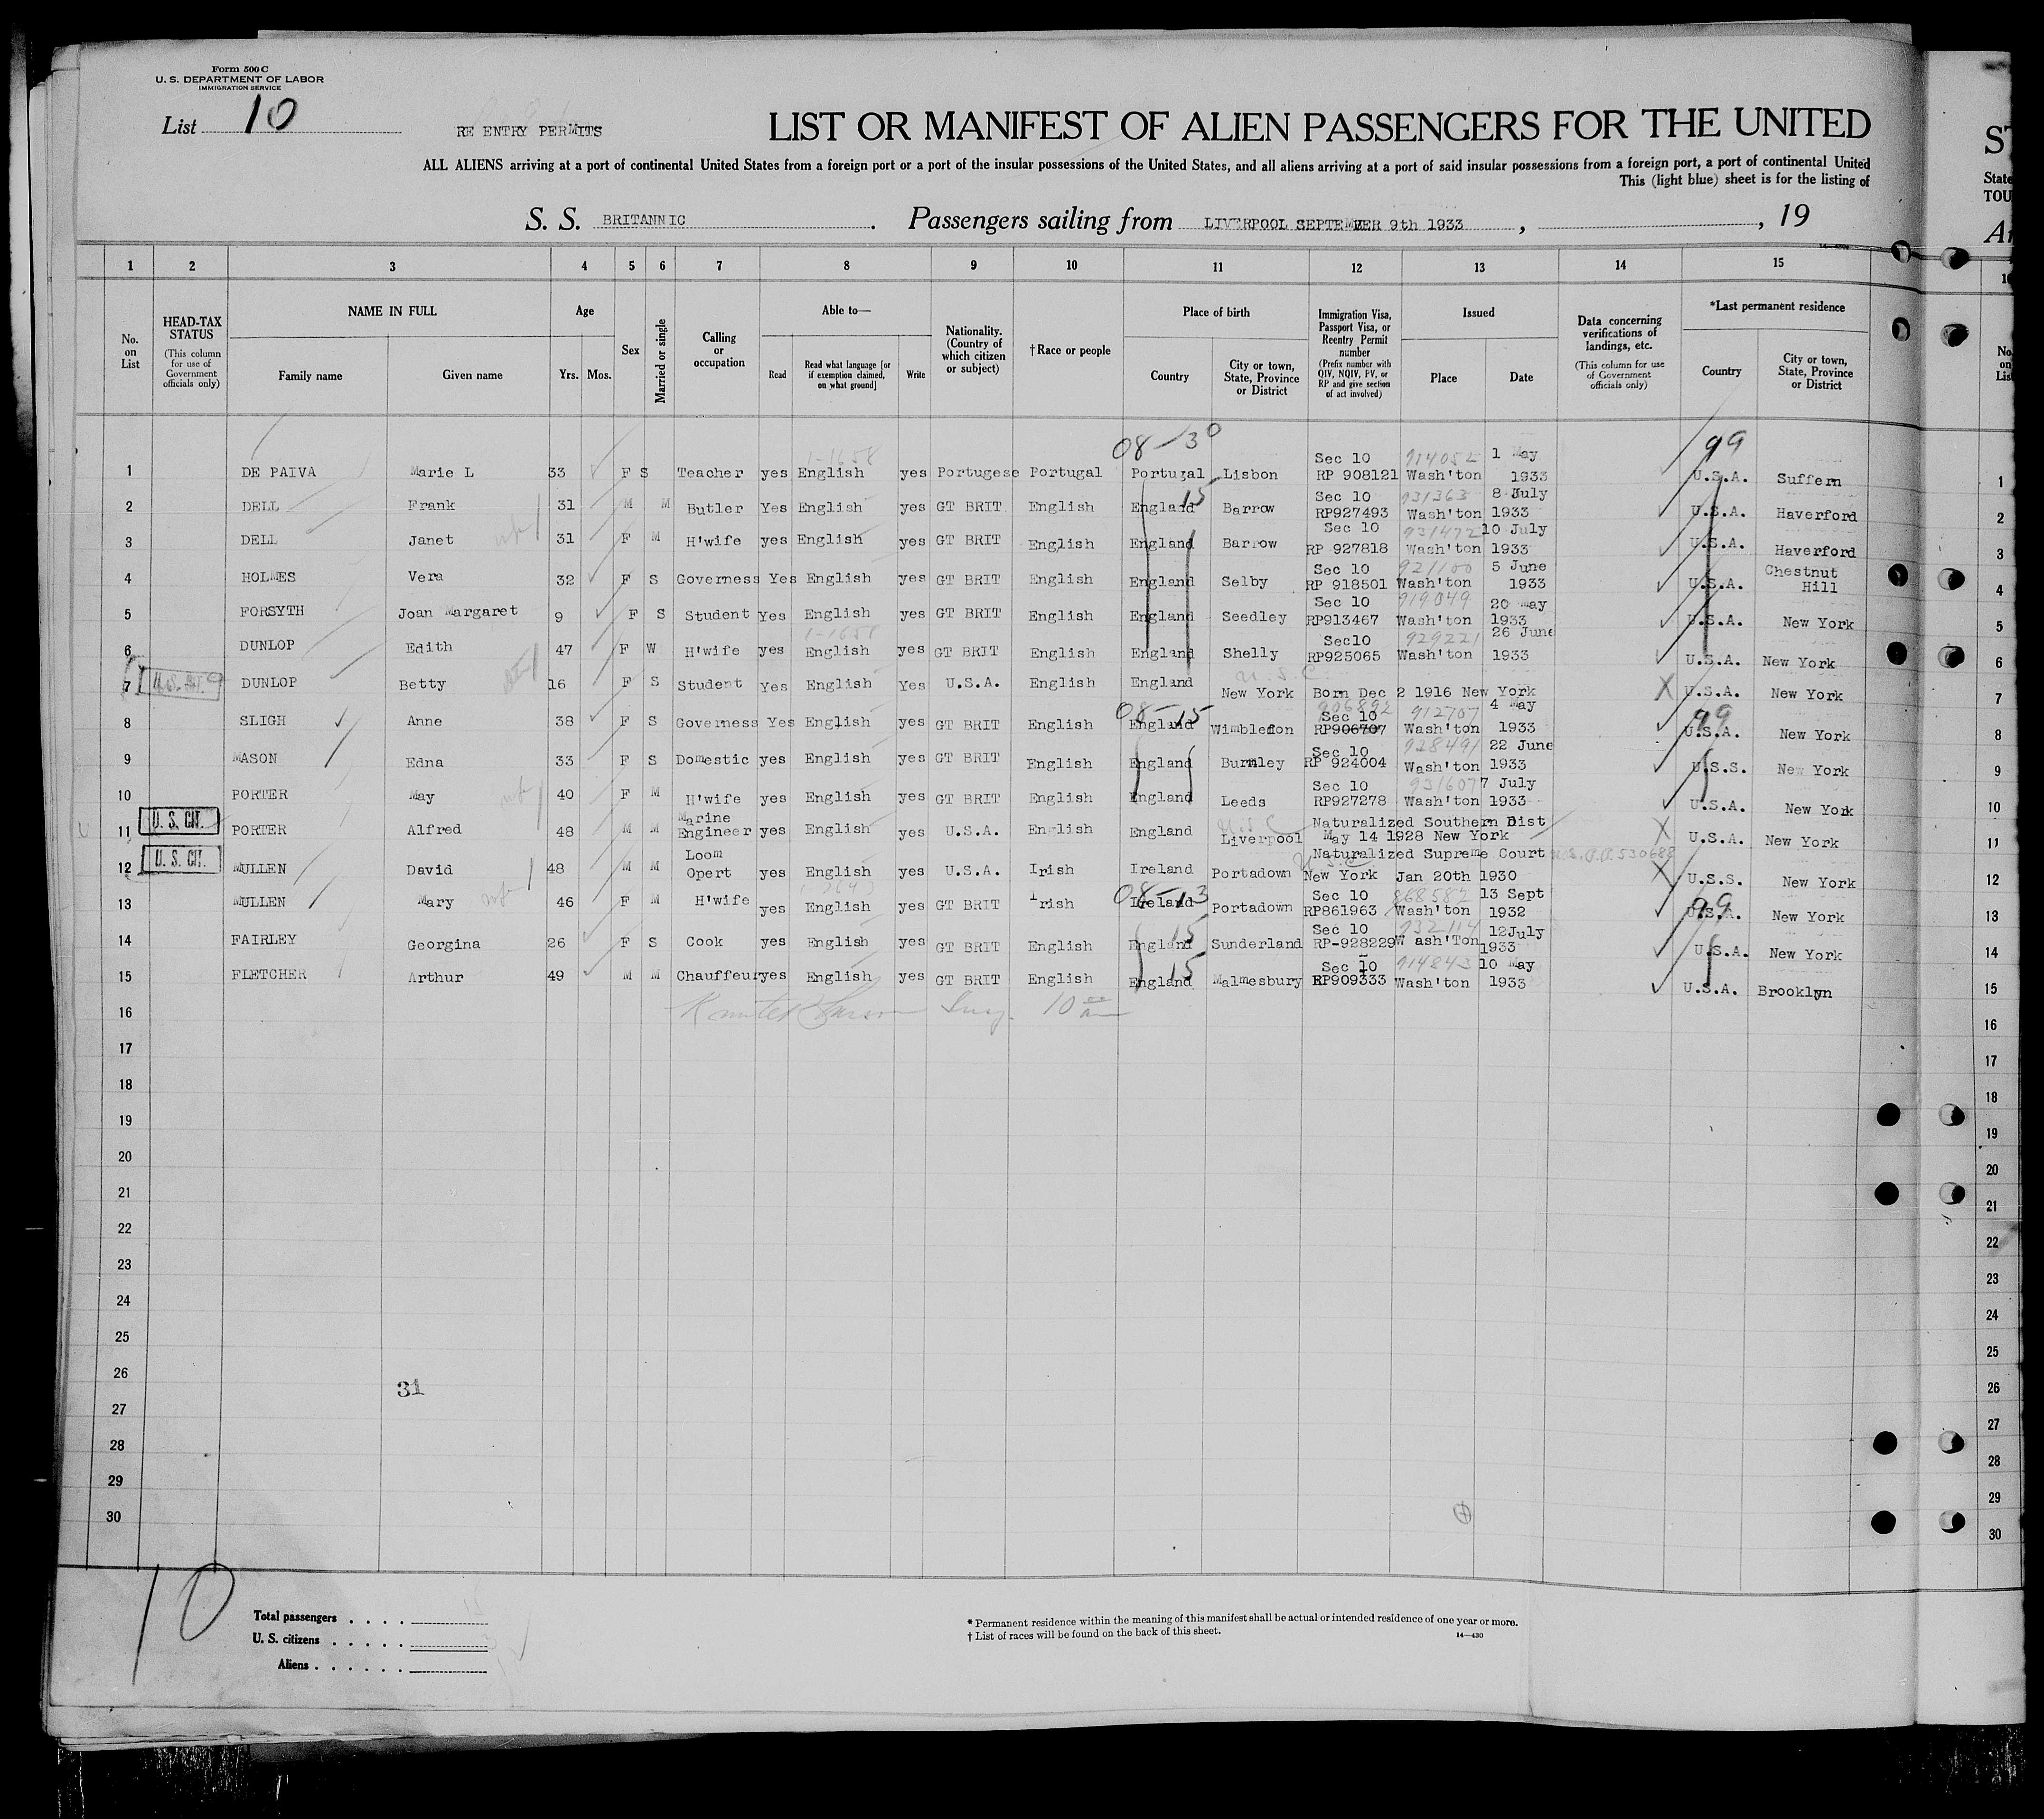 Form 500 C
U. S. DEPARTMENT OF LABOR
IMMIGRATION SERVICE
List 10
RE ENTRY PERMITS
LIST OR MANIFEST OF ALIEN PASSENGERS FOR THE UNITED
ST
ALL ALIENS arriving at a port of continental United States from a foreign port or a port of the insular possessions of the United States, and all aliens arriving at a port of said insular possessions from a foreign port, a port of continental United
State
This (light blue) sheet is for the listing of
TOU
S. S. BRITANNIC . Passengers sailing from LIVERPOOL SEPTEMBER 9th 1933 , , 19
1 2 3 4 5 6 7 8 9 10 11 12 13 14 15
No. on List
HEAD-TAX STATUS
(This column for use of Government officials only)
NAME IN FULL
Family name
Given name
Age
Yrs. Mos.
Sex
Married or single
Calling or occupation
Able to—
Read
Read what language [or if exemption claimed, on what ground]
Write
Nationality. (Country of which citizen or subject)
†Race or people
Place of birth
Country
City or town, State, Province or District
Immigration Visa, Passport Visa, or Reentry Permit number
(Prefix number with QIV, NQIV, PV, or RP and give section of act involved)
Issued
Place
Date
Data concerning verifications of landings, etc.
(This column for use of Government officials only)
*Last permanent residence
Country
City or town, State, Province or District
No. on List
08-30 99
1 DE PAIVA Marie L 33 F S Teacher yes English yes Portugese Portugal Portugal Lisbon Sec 10 RP 908121 914052 Wash'ton 1 May 1933 U.S.A. Suffern 1
2 DELL Frank 31 M M Butler Yes English yes GT BRIT English England 15 Barrow Sec 10 RP927493 931363 Wash'ton 8 July 1933 U.S.A. Haverford 2
3 DELL Janet 31 F M H'wife yes English yes GT BRIT English England Barrow Sec 10 RP 927818 931472 Wash'ton 10 July 1933 U.S.A. Haverford 3
4 HOLMES Vera 32 F S Governess Yes English yes GT BRIT English England Selby Sec 10 RP 918501 921100 Wash'ton 5 June 1933 U.S.A. Chestnut Hill 4
5 FORSYTH Joan Margaret 9 F S Student Yes English yes GT BRIT English England Seedley Sec 10 RP913467 919049 Wash'ton 20 May 1933 U.S.A. New York 5
6 DUNLOP Edith 47 F W H'wife yes English yes GT BRIT English England Shelly Sec10 RP925065 929221 Wash'ton 26 June 1933 U.S.A. New York 6
7 DUNLOP Betty 16 F S Student Yes English Yes U.S.A. English England New York Born Dec 2 1916 New York X U.S.A. New York 7
8 SLIGH Anne 38 F S Governess Yes English yes GT BRIT English England 08-15 Wimbledon 906892 Sec 10 RP906707 912707 Wash'ton 4 May 1933 99 U.S.A. New York 8
9 MASON Edna 33 F S Domestic yes English yes GT BRIT English England Burnley Sec 10 RP 924004 928491 Wash'ton 22 June 1933 U.S.S. New York 9
10 PORTER May 40 F M H'wife yes English yes GT BRIT English England Leeds Sec 10 RP927278 931607 Wash'ton 7 July 1933 U.S.A. New York 10
11 U. S. CIT. PORTER Alfred 48 M M Marine Engineer yes English yes U.S.A. English England Liverpool Naturalized Southern Dist May 14 1928 New York X U.S.A. New York 11
12 U. S. CIT. MULLEN David 48 M M Loom Opert yes English yes U.S.A. Irish Ireland Portadown Naturalized Supreme Court New York Jan 20th 1930 X U.S.S. New York 12
13 MULLEN Mary 46 F M H'wife yes English yes GT BRIT Irish Ireland 08-13 Portadown Sec 10 RP861963 868582 Wash'ton 13 Sept 1932 99 U.S.A. New York 13
14 FAIRLEY Georgina 26 F S Cook yes English yes GT BRIT English England 15 Sunderland Sec 10 RP-928229 932114 W ash'Ton 12July 1933 U.S.A. New York 14
15 FLETCHER Arthur 49 M M Chauffeur yes English yes GT BRIT English England 15 Malmesbury Sec 10 RP909333 914843 Wash'ton 10 May 1933 U.S.A. Brooklyn 15
16 16
17 17
18 18
19 19
20 20
21 21
22 22
23 23
24 24
25 25
26 26
31
27 27
28 28
29 29
30 30
10
Total passengers . . . .
U. S. citizens . . . . .
Aliens . . . . . .
* Permanent residence within the meaning of this manifest shall be actual or intended residence of one year or more.
† List of races will be found on the back of this sheet.
14—430